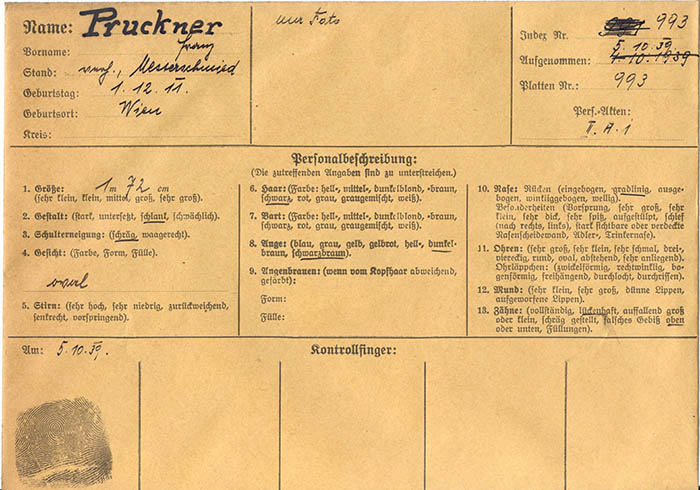 Name: Pruckner
Vorname: Franz
Stand: verh., Messerschmied
Geburtstag: 1. 12. 11.
Geburtsort: Wien
Kreis:
nur Foto
Index Nr. 993
5. 10. 39.
Aufgenommen: 4. 10. 1939
Platten Nr.: 993
Pers.-Akten:
II. A. 1
Personalbeschreibung:
(Die zutreffenden Angaben sind zu unterstreichen.)
1. Größe: 1 m 72 cm
(sehr klein, klein, mittel, groß, sehr groß).
2. Gestalt: (stark, untersetzt, schlank, schwächlich).
3. Schulterneigung: (schräg, waagerecht).
4. Gesicht: (Farbe, Form, Fülle).
oval
5. Stirn: (sehr hoch, sehr niedrig, zurückweichend,
senkrecht, vorspringend).
6. Haar: (Farbe: hell-, mittel-, dunkelblond, -braun,
schwarz, rot, grau, graugemischt, weiß).
7. Bart: (Farbe: hell-, mittel-, dunkelblond, -braun,
schwarz, rot, grau, graugemischt, weiß).
8. Auge: (blau, grau, gelb, gelbrot, hell-, dunkel-
braun, schwarzbraun).
9. Augenbrauen: (wenn vom Kopfhaar abweichend,
gefärbt):
Form:
Fülle:
10. Nase: Rücken (eingebogen, gradlinig, ausge-
bogen, winkliggebogen, wellig).
Besonderheiten (Vorsprung, sehr groß, sehr
klein, sehr dick, sehr spitz, aufgestülpt, schief
(nach rechts, links), stark sichtbare oder verdeckte
Nasenscheidewand, Adler-, Trinkernase).
11. Ohren: (sehr groß, sehr klein, sehr schmal, drei-,
viereckig, rund, oval, abstehend, sehr anliegend).
Ohrläppchen: (zwickelförmig, rechtwinklig, bo-
genförmig, freihängend, durchlocht, durchrissen).
12. Mund: (sehr klein, sehr groß, dünne Lippen,
aufgeworfene Lippen).
13. Zähne: (vollständig, lückenhaft, auffallend groß
oder klein, schräg gestellt, falsches Gebiß oben
oder unten, Füllungen).
Am: 5. 10. 39.
Kontrollfinger: